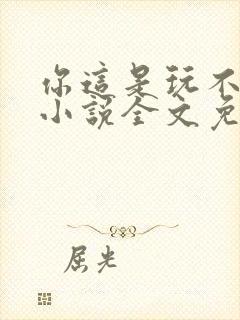 你這是玩不
小說全文免
屈光